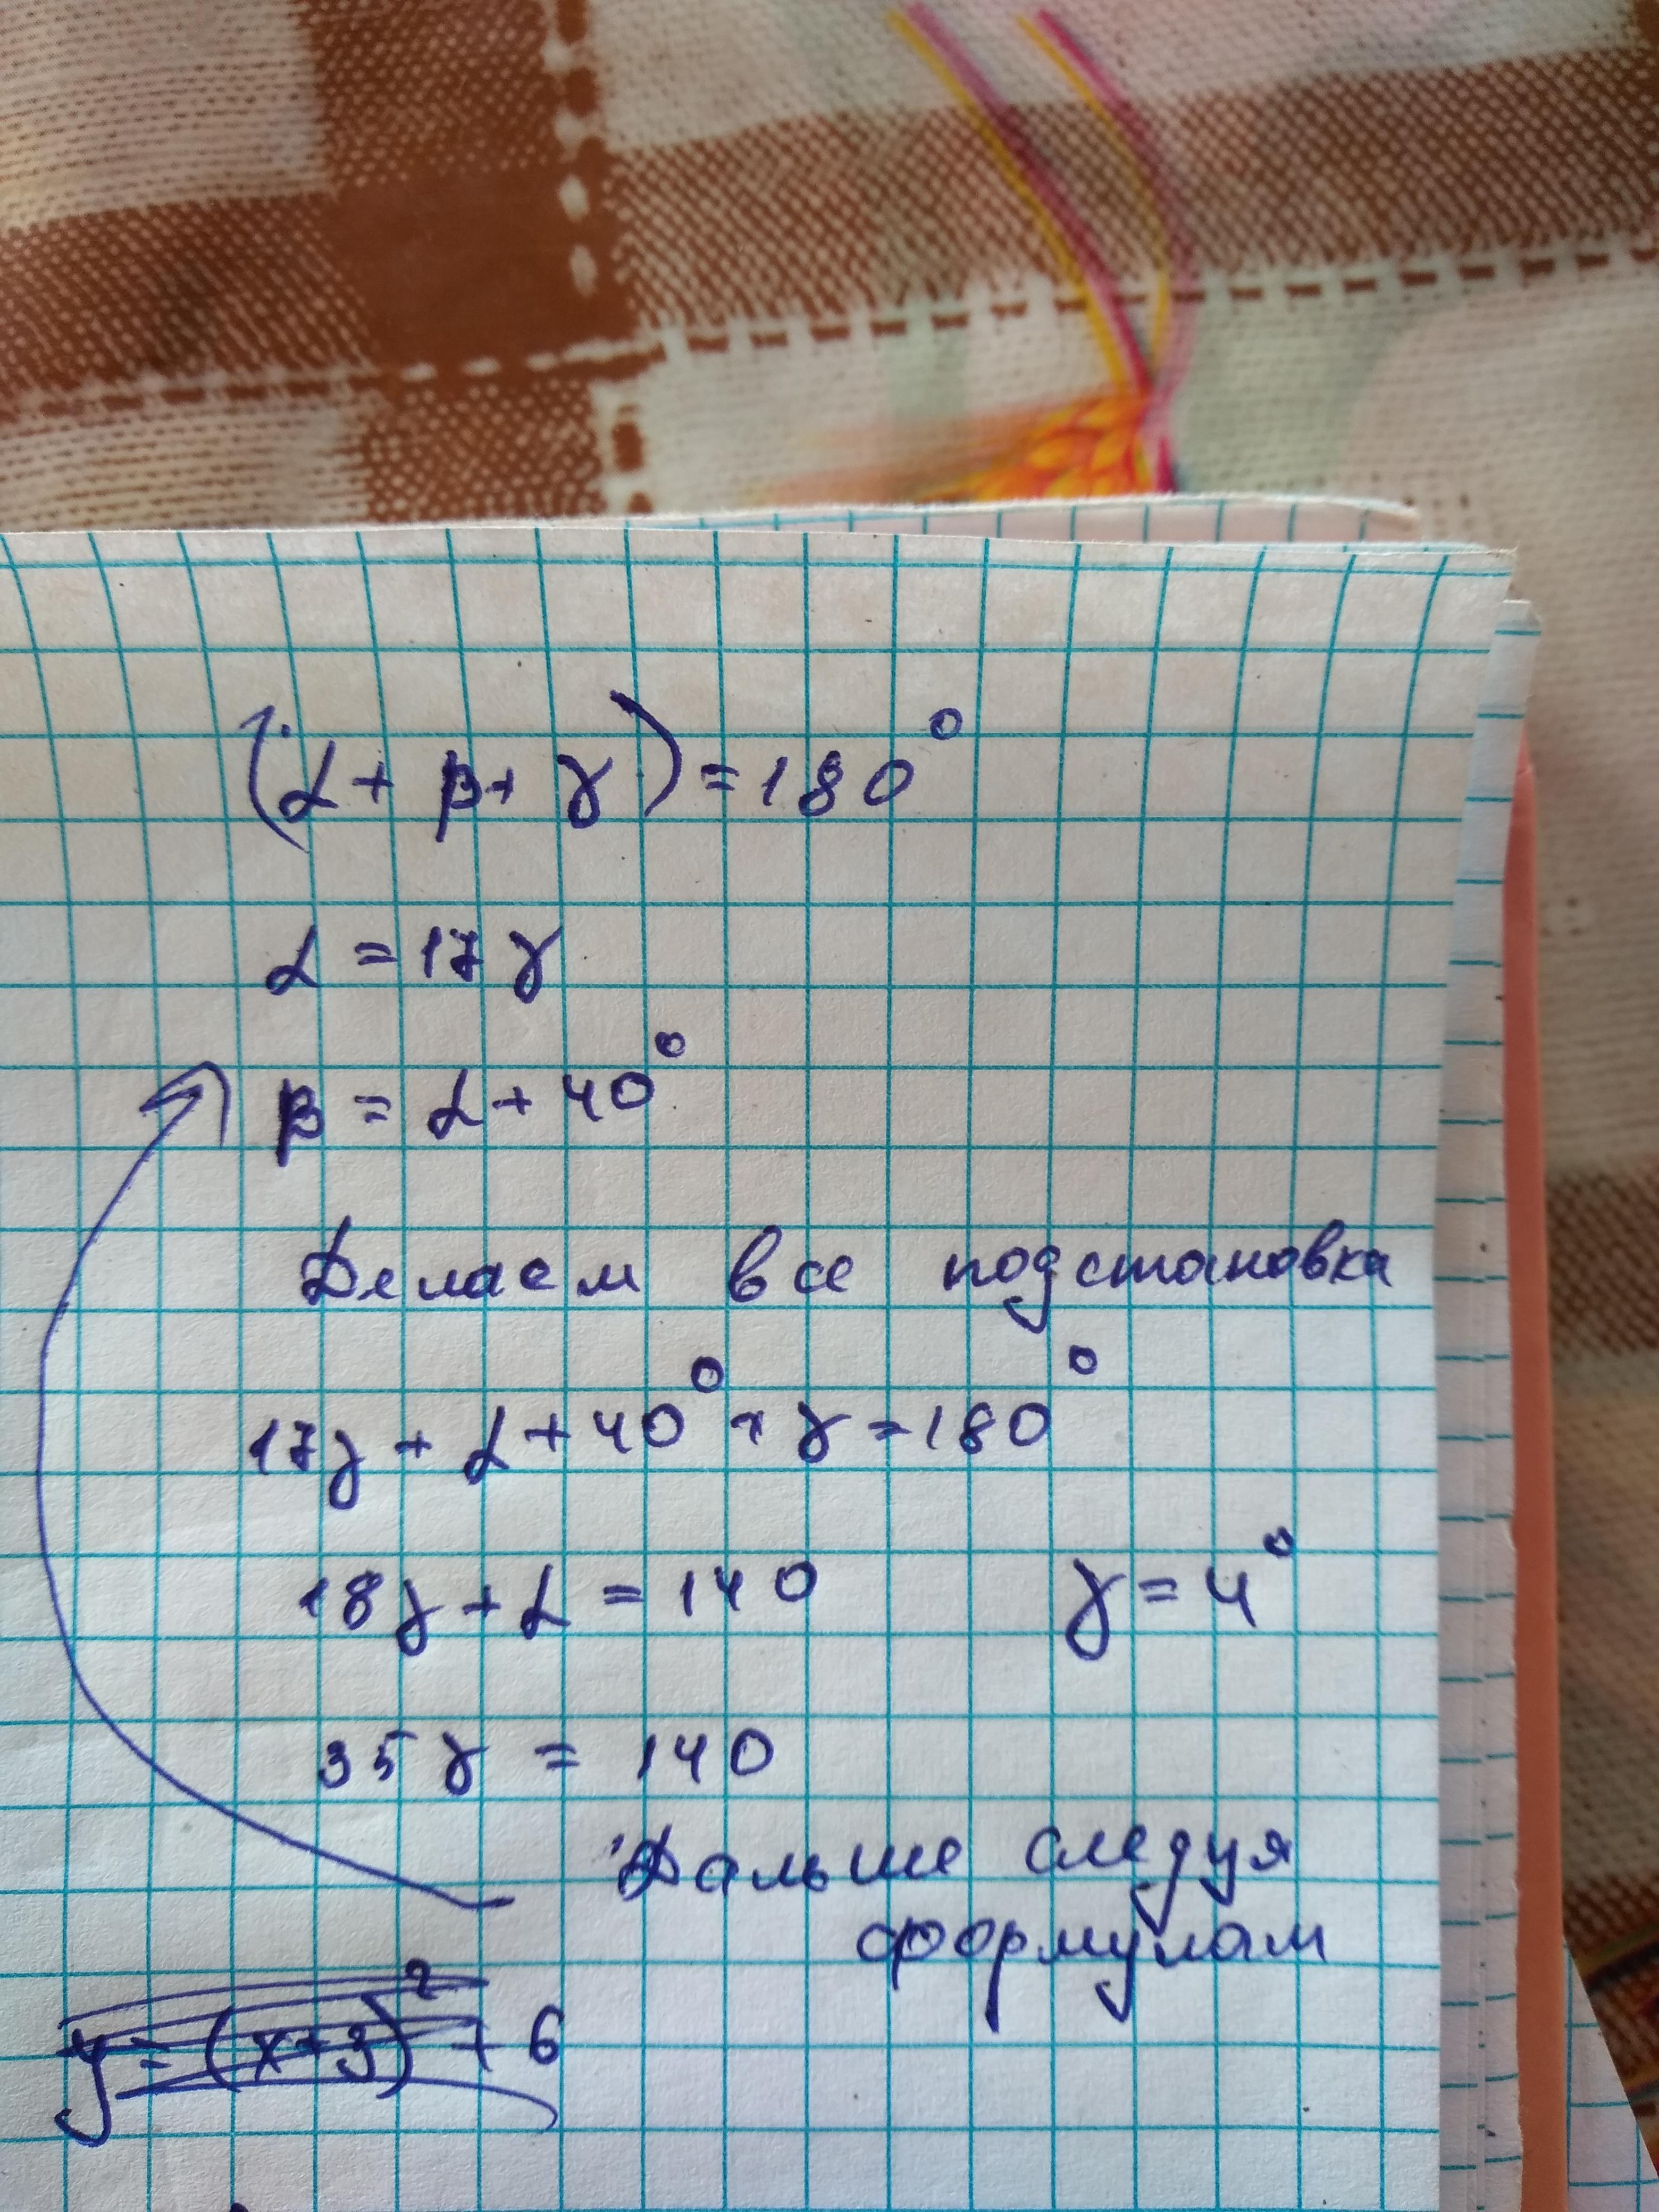 (α + β + γ) = 180°
α = 17γ
β = α + 40°
Делаем все подстановка
17γ + α + 40° + γ = 180°
18γ + α = 140 γ = 4°
35γ = 140
Дальше следуя
формулам
y = (x+3)² + 6